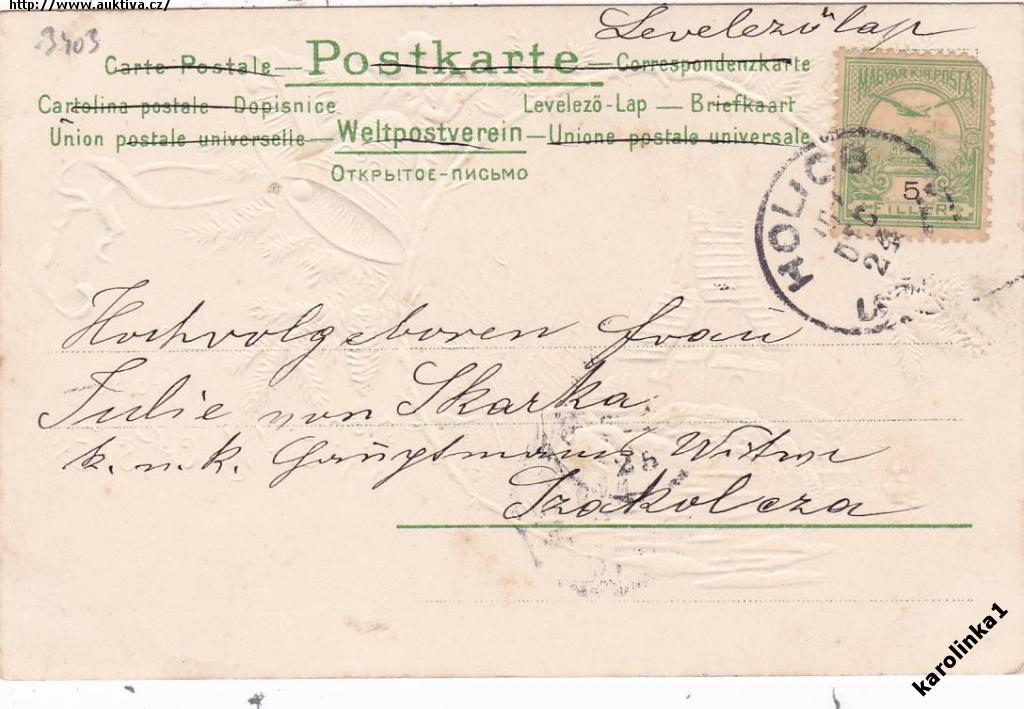 http://www.auktiva.cz/
3403
Levelezőlap
Carte Postale — Postkarte — Correspondenzkarte
Cartolina postale - Dopisnice
Levelező-Lap — Briefkaart
Union postale universelle — Weltpostverein — Unione postale universale
ОТКРЫТОЕ-ПИСЬМО
MAGYAR KIR. POSTA
5
FILLÉR
HOLICS
DEC
24
Hochwolgeboren Frau
Julie von Skarka
k. u. k. Hauptmanns Witwe
25
Szakolcza
karolinka1